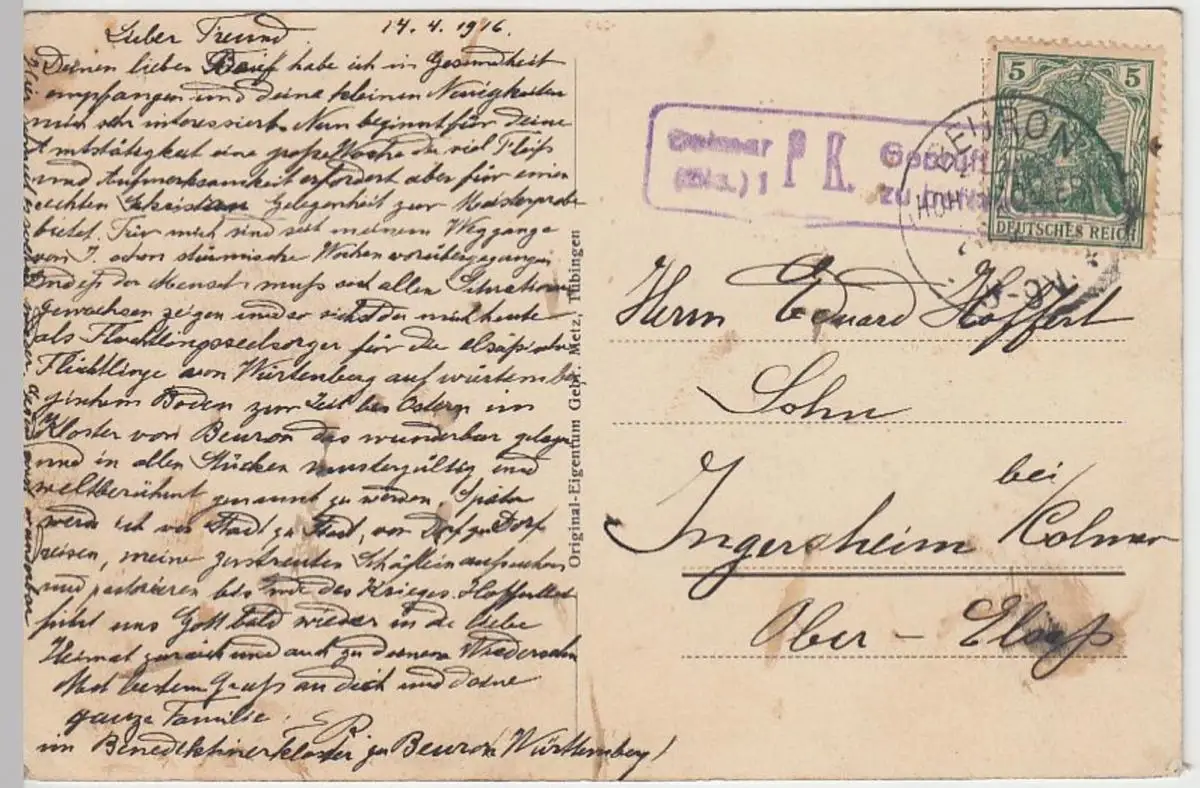 Lieber Freund. 14.4.1916.
Deinen lieben Brief habe ich in Gesundheit
empfangen und deine kleinen Neuigkeiten
mich sehr interessiert. Nun beginnt für deine
Amtstätigkeit eine große Woche die viel Fleiß
und Aufmerksamkeit erfordert aber für einen
echten Christian Gelegenheit zur Meisterprobe
bietet. Für mich sind seit meinem Weggange
von J. schon stürmische Wochen vorübergegangen
Indeß der Mensch muß sich allen Situationen
gewachsen zeigen und so siehst du mich heute
als Fluchtlingsseelsorger für die elsäßischen
Flüchtlinge von Würtenberg auf würtember
gischem Boden zur Zeit bis Ostern im
Kloster von Beuron das wunderbar gelegen
und in allen Stücken mustergültig und
weltberühmt genannt zu werden. Später
werde ich von Stadt zu Stadt, von Dorf zu Dorf
reisen, meine zerstreuten Schäflein aufsuchen
und pastorieren bis Ende des Krieges. Hoffentlich
führt uns Gott bald wieder in die liebe
Heimat zurück und auch zu deinem Wiedersehn
Mit bestem Gruß an dich und deine
ganze Familie.
im Benediktinerkloster zu Beuron Württemberg!
Original-Eigentum Gebr. Metz, Tübingen
Colmar
(Els.) 1
P. K.
Geprüft
zu
BEURON
5 5
DEUTSCHES REICH
Herrn Eduard Hoffert
Sohn
bei
Ingersheim Kolmar
Ober - Elsaß